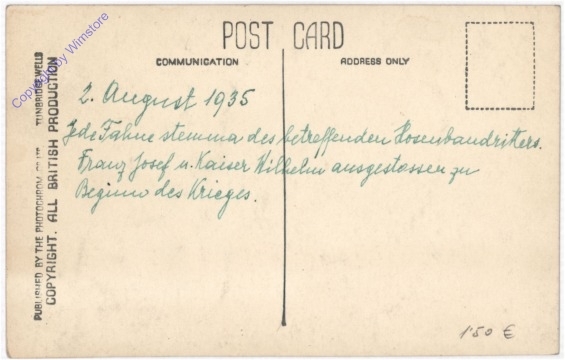 POST CARD
COMMUNICATION
ADDRESS ONLY
2. August 1935
Jede Fahne stemma des betreffenden Hosenbandritters.
Franz Josef u. Kaiser Wilhelm ausgestossen zu
Beginn des Krieges.
PUBLISHED BY THE PHOTOCHROM CO. LTD. TUNBRIDGE WELLS
COPYRIGHT. ALL BRITISH PRODUCTION
Copyright by Wimstore
1'50 €